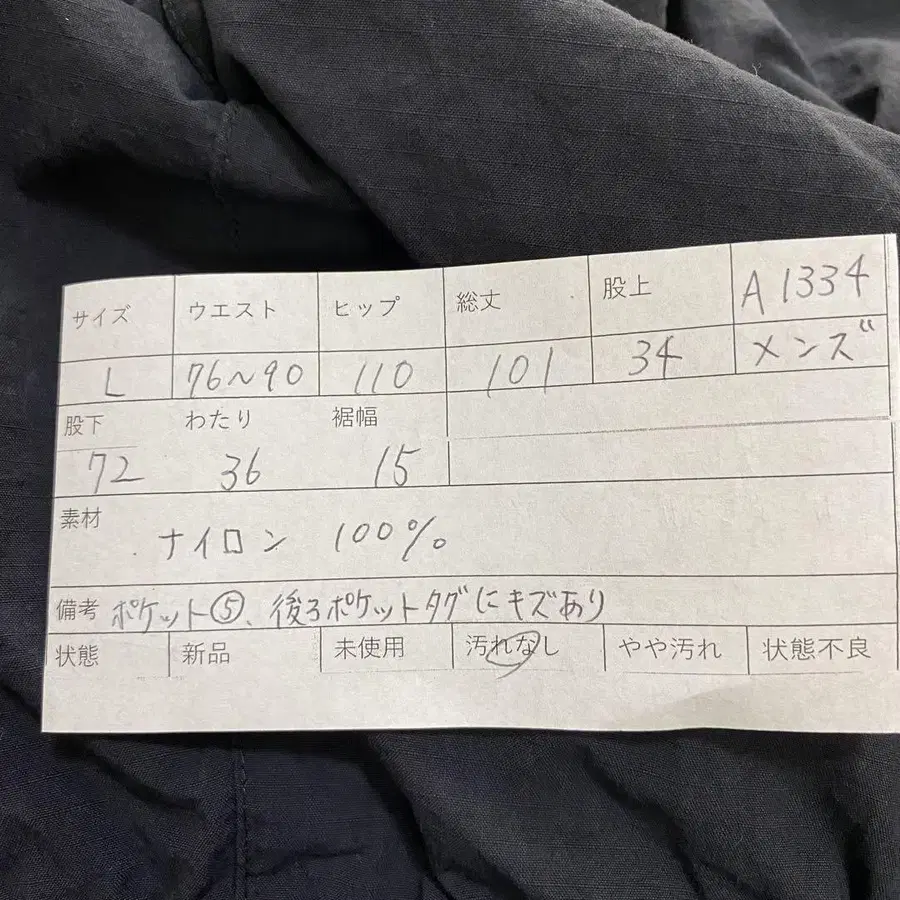 サイズ ウエスト ヒップ 総丈 股上 A1334
L 76〜90 110 101 34 メンズ
股下 わたり 裾幅
72 36 15
素材
ナイロン 100%
備考 ポケット⑤、後ろポケットタグにキズあり
状態 新品 未使用 汚れなし やや汚れ 状態不良